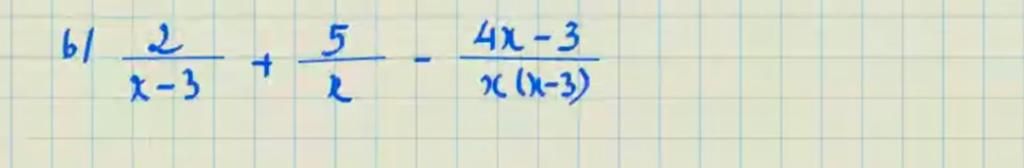 b/ \frac{2}{x-3} + \frac{5}{x} - \frac{4x-3}{x(x-3)}